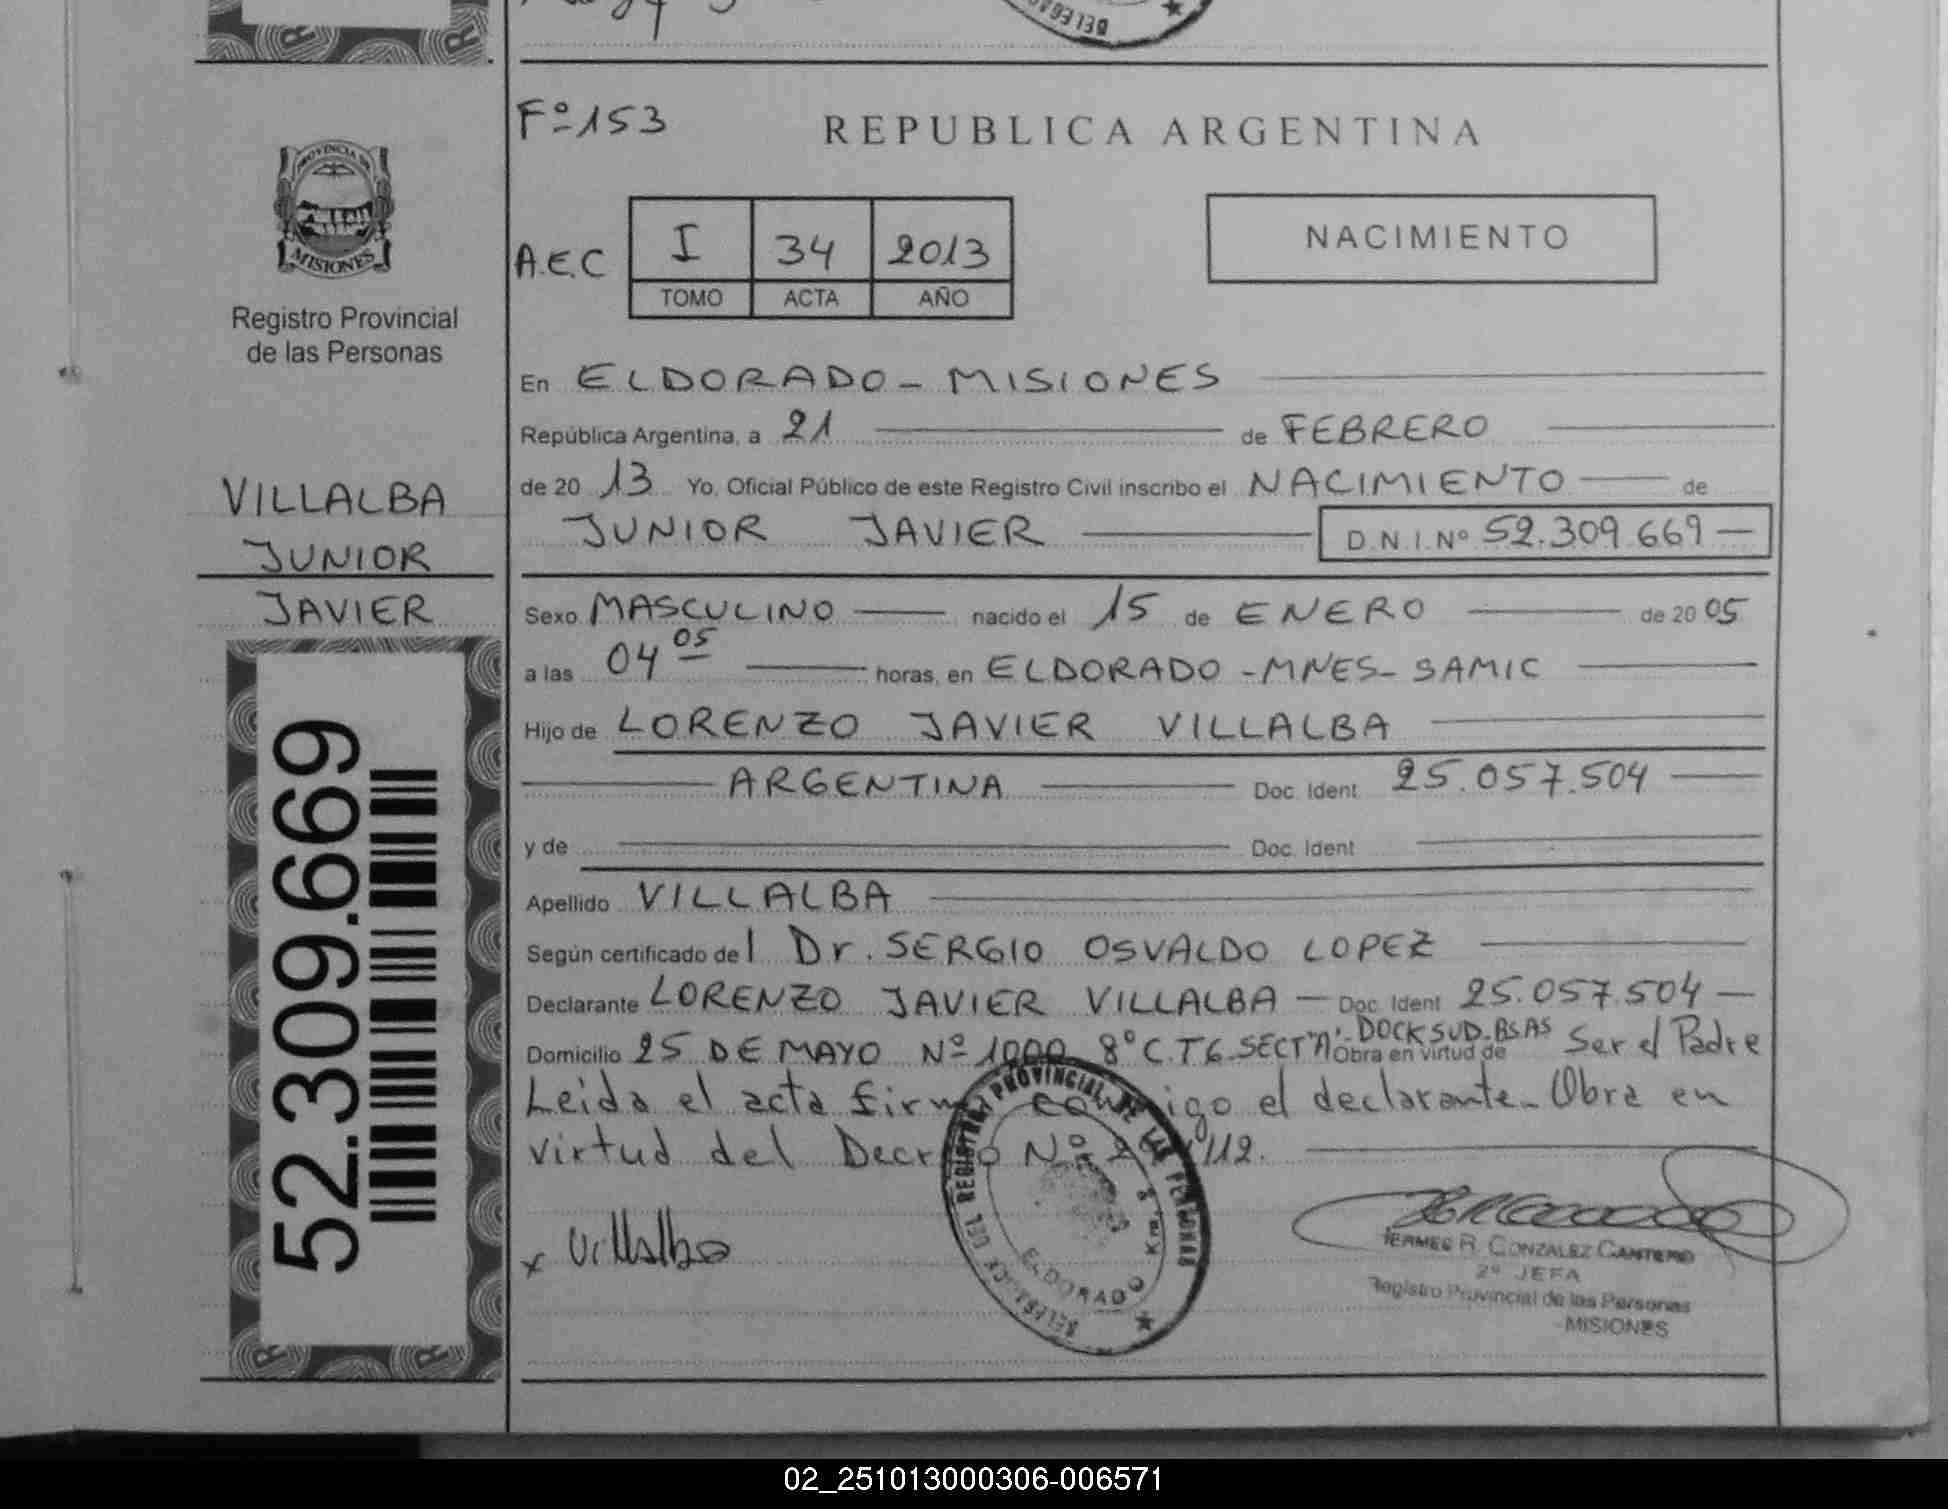 F° 153
REPUBLICA ARGENTINA
PROVINCIA DE
MISIONES
Registro Provincial
de las Personas
A.E.C I 34 2013
TOMO ACTA AÑO
NACIMIENTO
VILLALBA
JUNIOR
JAVIER
52.309.669
En ELDORADO - MISIONES
República Argentina, a 21 de FEBRERO
de 20 13 Yo, Oficial Público de este Registro Civil inscribo el NACIMIENTO de
JUNIOR JAVIER D.N.I.Nº 52.309.669
Sexo MASCULINO nacido el 15 de ENERO de 20 05
a las 04 05 horas, en ELDORADO - MNES - SAMIC
Hijo de LORENZO JAVIER VILLALBA
ARGENTINA Doc. Ident 25.057.504
y de Doc. Ident
Apellido VILLALBA
Según certificado de l Dr. SERGIO OSVALDO LOPEZ
Declarante LORENZO JAVIER VILLALBA Doc. Ident 25.057.504
Domicilio 25 DE MAYO Nº 1000 8° C.T6.SECT"A"-DOCK SUD-BSAS Obra en virtud de Ser el Padre
Leida el acta firma conmigo el declarante. Obra en
virtud del Decreto Nº /12.
x Villalba
DELEGACION DEL REGISTRO PROVINCIAL DE LAS PERSONAS
ELDORADO Km. 8
HERMES R. GONZALEZ CANTERO
2º JEFA
Registro Provincial de las Personas
MISIONES
02_251013000306-006571